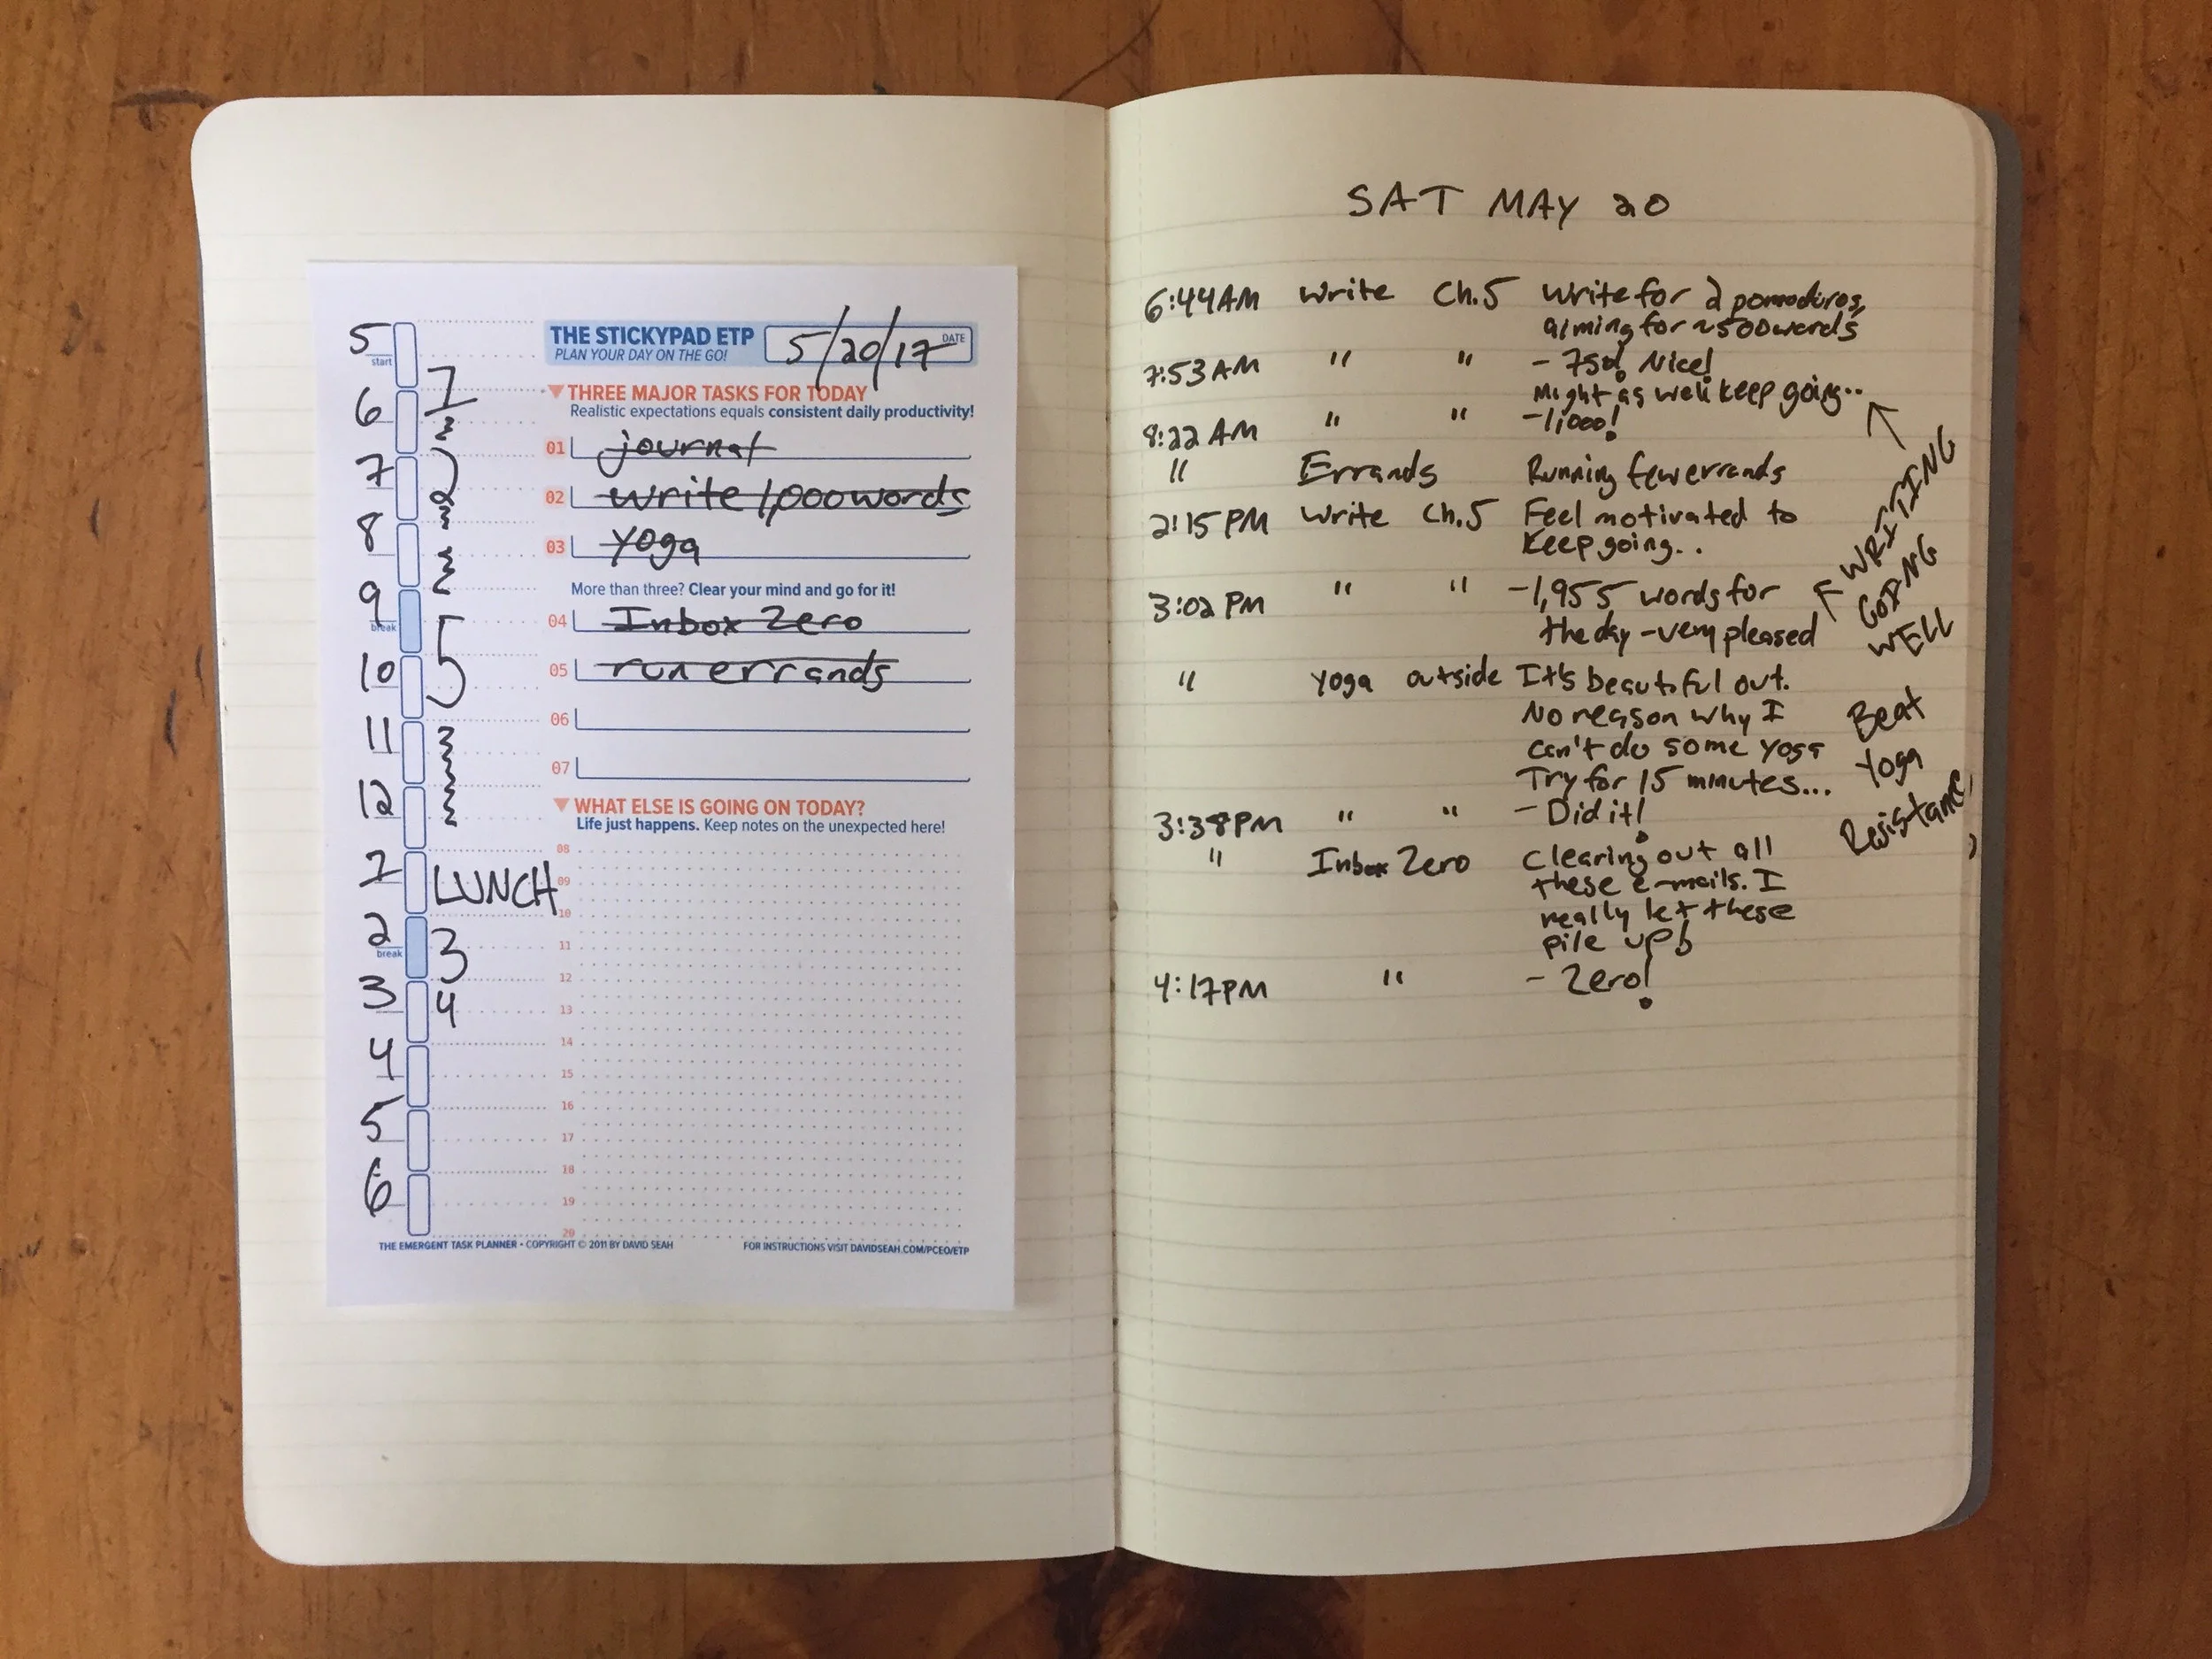 THE STICKYPAD ETP
PLAN YOUR DAY ON THE GO!
5/20/17
DATE
THREE MAJOR TASKS FOR TODAY
Realistic expectations equals consistent daily productivity!
01 journal
02 write 1,000 words
03 yoga
More than three? Clear your mind and go for it!
04 Inbox Zero
05 run errands
06
07
WHAT ELSE IS GOING ON TODAY?
Life just happens. Keep notes on the unexpected here!
08
09
10
11
12
13
14
15
16
17
18
19
20
5
start
6 1
7 2
8
9
break
10 5
11
12
1 LUNCH
2 3
break
3 4
4
5
6
THE EMERGENT TASK PLANNER • COPYRIGHT © 2011 BY DAVID SEAH
FOR INSTRUCTIONS VISIT DAVIDSEAH.COM/PCEO/ETP
SAT MAY 20
6:44AM Write Ch.5 Write for 2 pomodoros,
aiming for ~500 words
7:53AM " " - 750! Nice!
Might as well keep going..
8:22 AM " " - 1,000!
" Errands Running few errands
2:15 PM Write Ch.5 Feel motivated to
keep going..
3:02 PM " " - 1,955 words for
the day - very pleased
" Yoga outside It's beautiful out.
No reason why I
can't do some yoga
Try for 15 minutes...
3:38PM " " - Did it!
" Inbox Zero Clearing out all
these e-mails. I
really let these
pile up!
4:17PM " - Zero!
WRITING
GOING
WELL
Beat
Yoga
Resistance